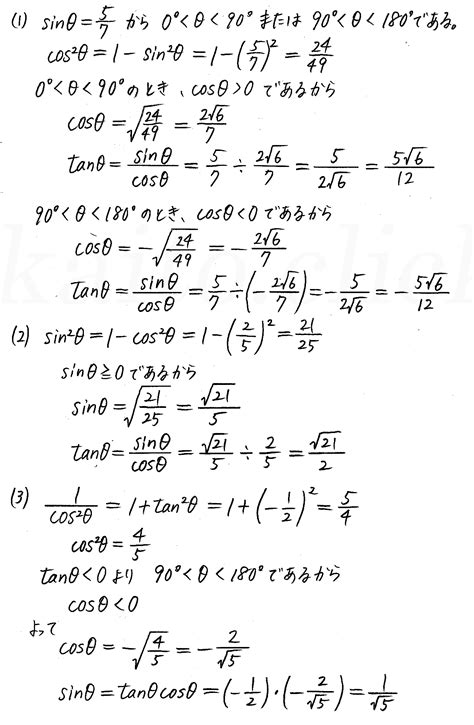 (1) sinθ = 5/7 から 0°<θ<90° または 90°<θ<180°である。
cos²θ = 1 - sin²θ = 1 - (5/7)² = 24/49
0°<θ<90°のとき、cosθ>0 であるから
cosθ = √(24/49) = 2√6/7
tanθ = sinθ/cosθ = 5/7 ÷ 2√6/7 = 5/2√6 = 5√6/12
90°<θ<180°のとき、cosθ<0 であるから
cosθ = -√(24/49) = -2√6/7
tanθ = sinθ/cosθ = 5/7 ÷ (-2√6/7) = -5/2√6 = -5√6/12
(2) sin²θ = 1 - cos²θ = 1 - (2/5)² = 21/25
sinθ≧0 であるから
sinθ = √(21/25) = √21/5
tanθ = sinθ/cosθ = √21/5 ÷ 2/5 = √21/2
(3) 1/cos²θ = 1 + tan²θ = 1 + (-1/2)² = 5/4
cos²θ = 4/5
tanθ<0 より 90°<θ<180°であるから
cosθ<0
よって
cosθ = -√(4/5) = -2/√5
sinθ = tanθcosθ = (-1/2)・(-2/√5) = 1/√5